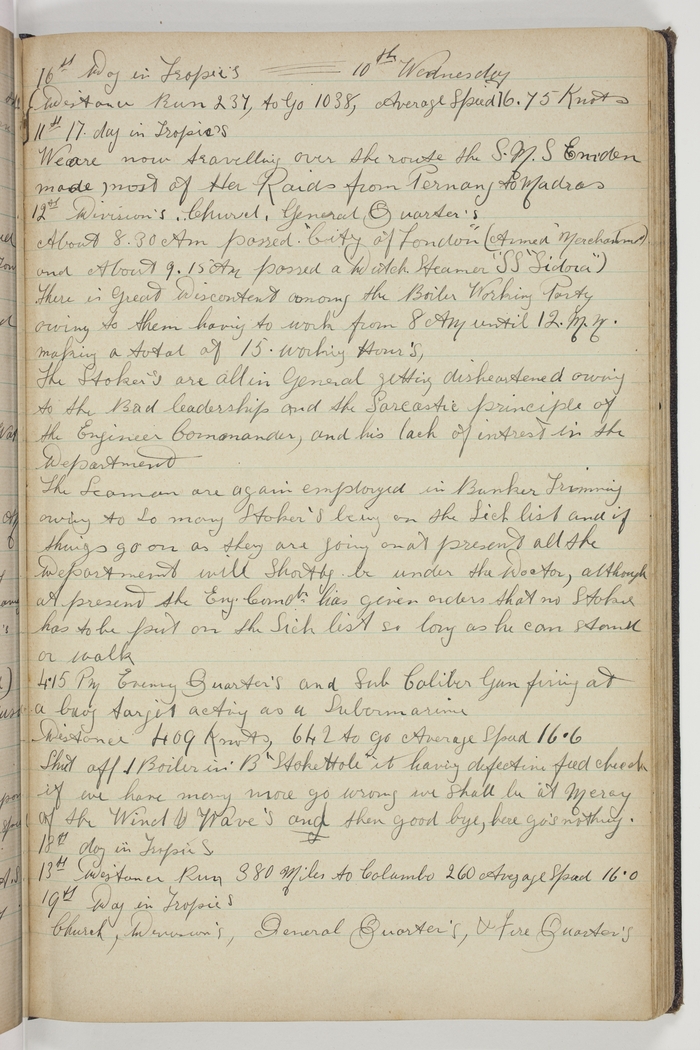 16th Day in Tropic's 10th Wednesday
Distance Run 237, to Go 1038, Average Speed 16.75 Knots
11th 17. day in Tropic's
We are now travelling over the route the S.M.S Emden
made most of Her Raids from Pernang to Madras
12th Division's. Church, General Quarter's
About 8.30 Am passed "City of London" (Armed Merchantman)
and About 9.15 Am passed a Dutch Steamer "SS "Sidora")
There is Great Discontent among the Boiler Working Party
owing to them having to work from 8 AM until 12. M.N.
making a total of 15. working Hour's,
The Stoker's are all in General getting disheartened owing
to the Bad leadership and the Sarcastic principle of
the Engineer Commander, and his lack of intrest in the
Department
The Seaman are again employed in Bunker Trimming
owing to so many Stoker's being on the Sick list and if
things go on as they are going on at present all the
Department will Shortly be under the Doctor, although
at present the Eng. Comdr has given orders that no Stoker
has to be put on the Sick list so long as he can stand
or walk
4.15 PM Evening Quarter's and Sub Caliber Gun firing at
a buoy target acting as a Submarine
Distance 409 Knots, 642 to go Average Speed 16.6
Shut off 1 Boiler in "B" Stoke Hole it having defective feed check
if we have many more go wrong we shall be at Mercy
of the Wind & Wave's and then good bye, here go's nothing.
18th day in Tropics
13th Distance Run 380 Miles to Columbo 260 Average Speed 16.0
19th Day in Tropics
Church, Division's, General Quarter's, & Fire Quarter's